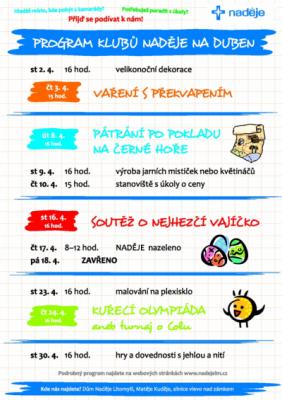 Hledáš místo, kde pobýt s kamarády?
Potřebuješ poradit s úkoly?
Přijď se podívat k nám!
naděje
PROGRAM KLUBŮ NADĚJE NA DUBEN
st 2. 4. 16 hod. velikonoční dekorace
čt 3. 4. 15 hod. VAŘENÍ S PŘEKVAPENÍM
út 8. 4. 16 hod. PÁTRÁNÍ PO POKLADU
NA ČERNÉ HOŘE
st 9. 4. 16 hod. výroba jarních mističek nebo květináčů
čt 10. 4. 15 hod. stanoviště s úkoly o ceny
st 16. 4. 16 hod. SOUTĚŽ O NEJHEZČÍ VAJÍČKO
čt 17. 4. 8–12 hod. NADĚJE nazeleno
pá 18. 4. ZAVŘENO
st 23. 4. 16 hod. malování na plexisklo
čt 24. 4. 16 hod. KUŘECÍ OLYMPIÁDA
aneb turnaj o Colu
st 30. 4. 16 hod. hry a dovednosti s jehlou a nití
Podrobný program najdete na webových stránkách www.nadejelm.cz
Kde nás najdete? Dům Naděje Litomyšl, Matěje Kuděje, silnice vlevo nad zámkem